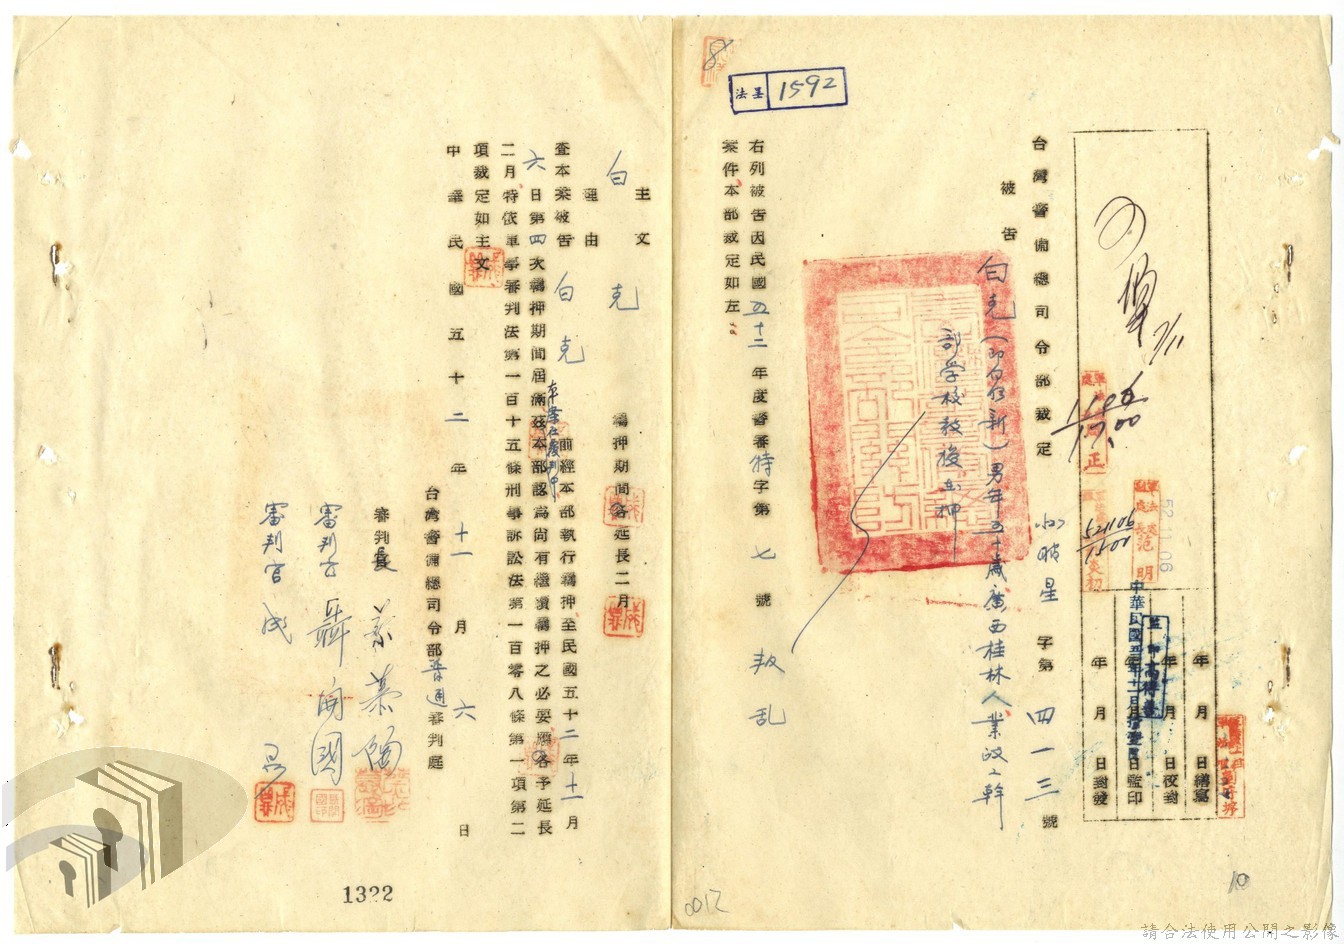 法呈 1592
8
年 月 日繕寫
年 月 日校對
年 月 日監印
年 月 日封發
中華民國五十二年十一月
監印 高得
521106
1500
52.11.06
台灣警備總司令部裁定 字第四一三號
被告 白克(即白明新)男年五十歲廣西桂林人業政工幹
部学校教授在押
右列被告因民國五十二年度警審特字第七號叛乱
案件本部裁定如左
主文
白克 羈押期間各延長二月
理由
查本案被告白克 前經本部執行羈押至民國五十二年十一月
本案在覆判中
六日第四次羈押期間屆滿茲本部認為尚有繼續羈押之必要應各予延長
二月特依軍事審判法第一百十五條刑事訴訟法第一百零八條第一項第二
項裁定如主文
中華民國五十二年十一月六日
台灣警備總司令部普通審判庭
審判長
審判官 聶開國
審判官 成
1322
10
請合法使用公開之影像